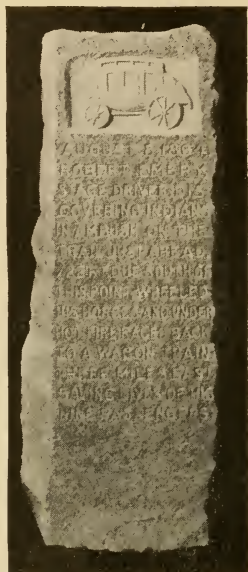 AUGUST
ROBERT EMERY
STAGE DRIVER DIS-
COVERING INDIANS
IN AMBUSH ON THE
TRAIL JUST AHEAD
DUE SOUTH OF
THIS POINT WHEELED
HIS HORSES AND UNDER
HOT FIRE RACED BACK
TO A WAGON TRAIN
THREE MILES EAST
SAVING LIVES OF HIS
NINE PASSENGERS